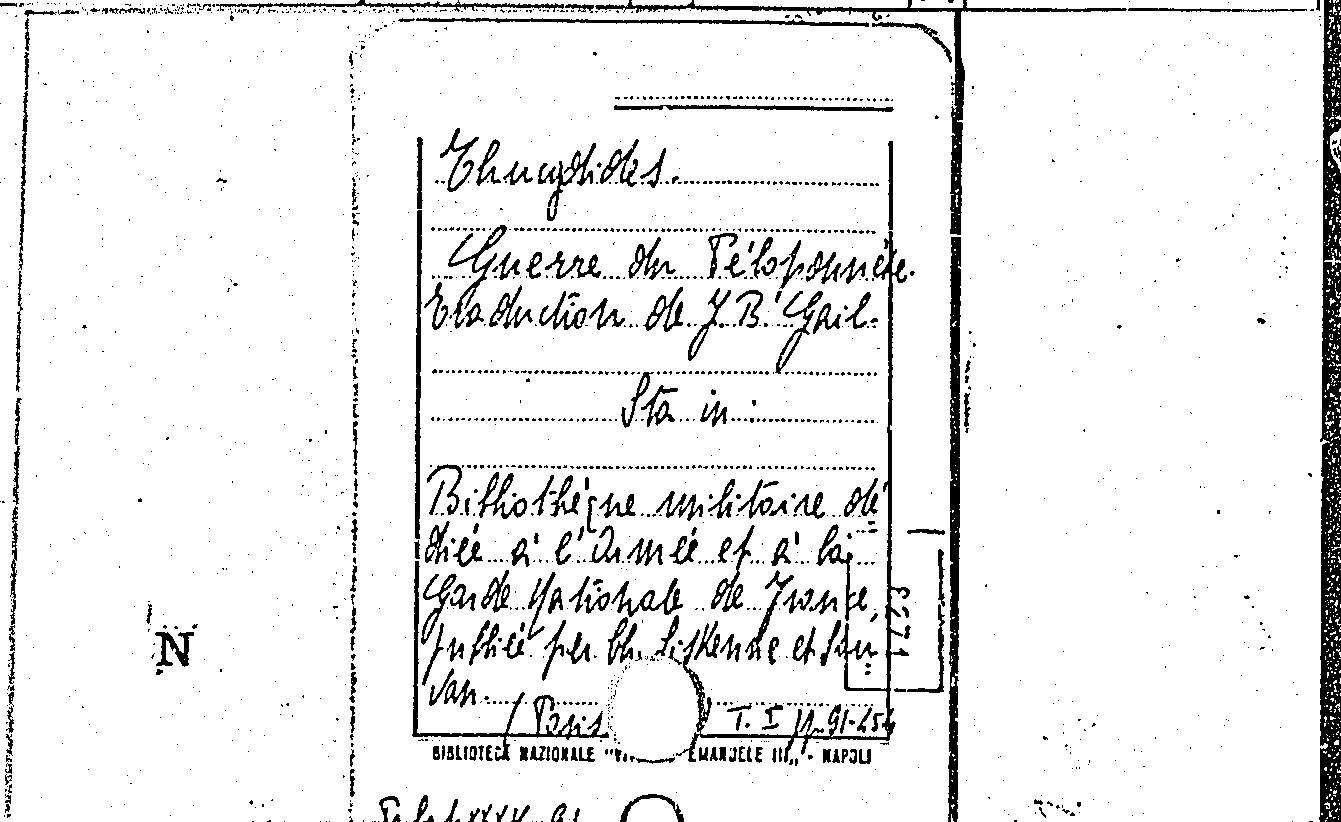 Thucydides.
Guerre du Péloponnèse.
Traduction de J. B. Gail.
Sta in:
Bibliothèque militaire dé
diée à l'Armée et à la
Garde Nationale de France,
publiée par Ch. Liskenne et Sau
van.
(Paris ) T. I pp. 91-454
BIBLIOTECA NAZIONALE "VI EMANUELE III„ - NAPOLI
N